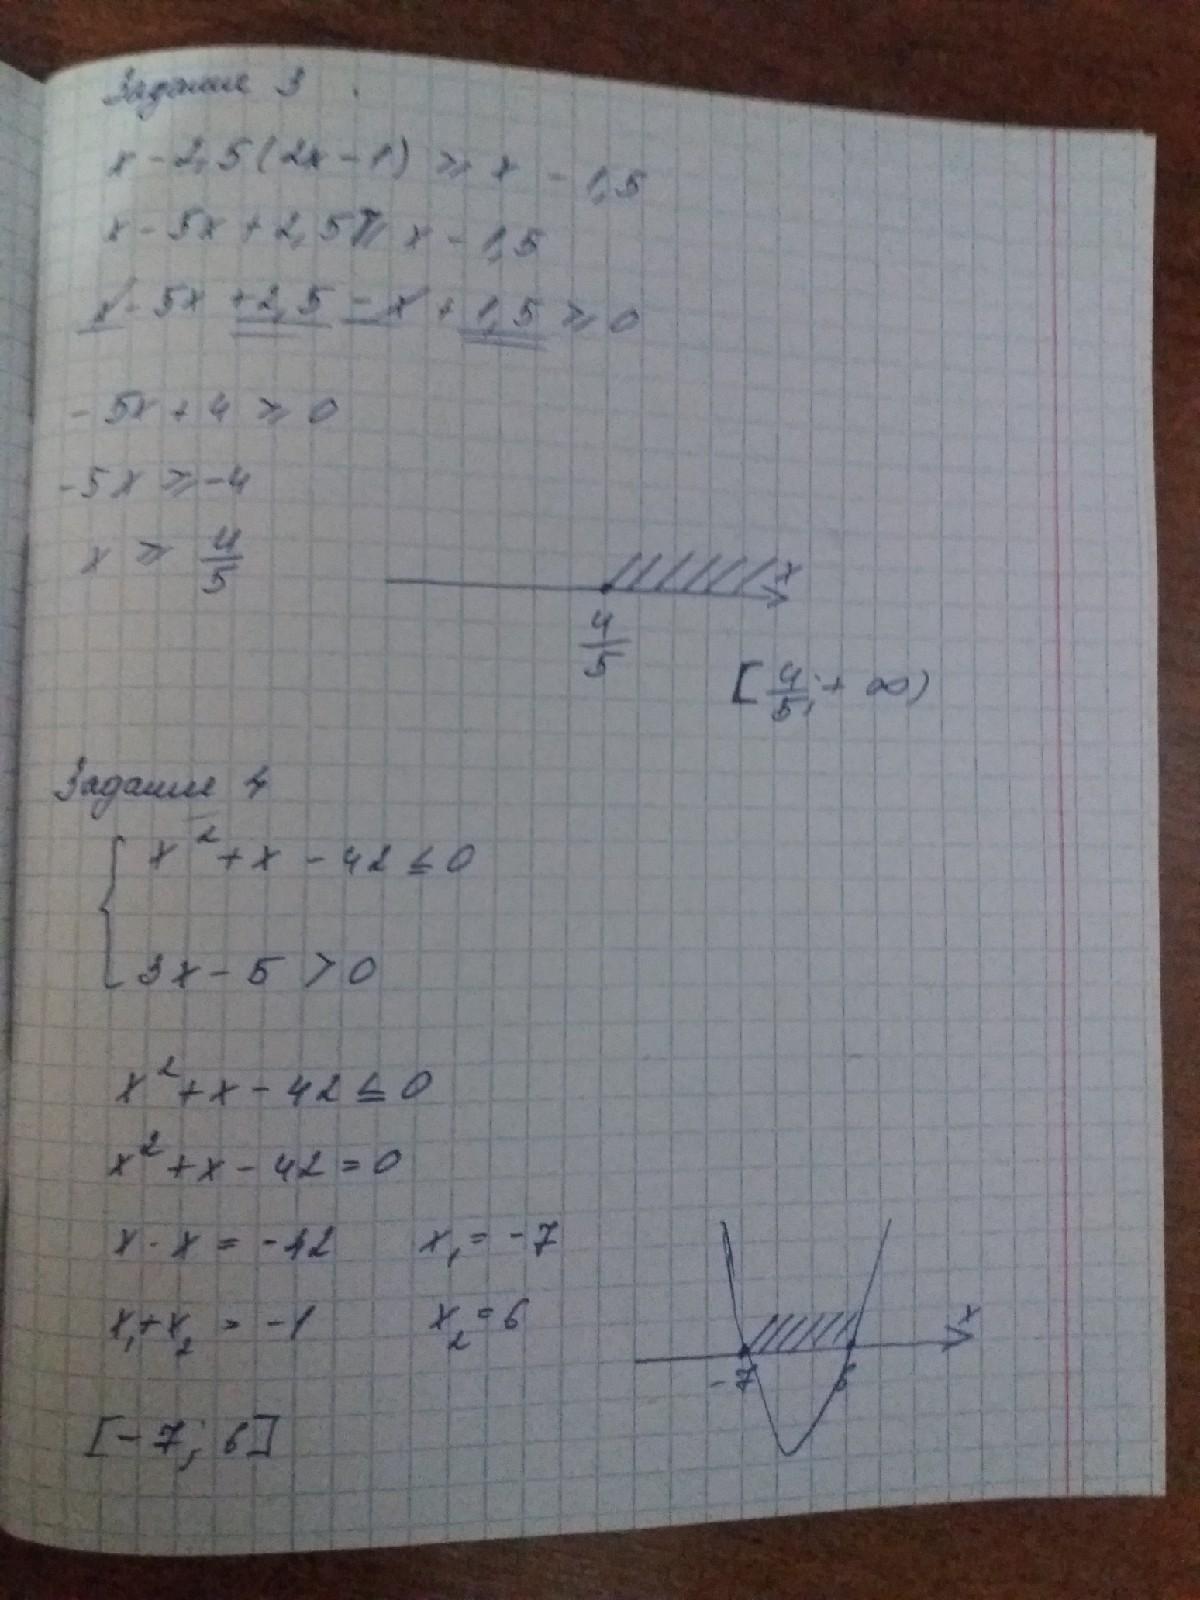 Задание 3
x - 2,5(2x - 1) ⩾ x - 1,5
x - 5x + 2,5 ⩾ x - 1,5
x - 5x + 2,5 - x + 1,5 ⩾ 0
- 5x + 4 ⩾ 0
- 5x ⩾ -4
x ⩾ 4/5
x
4/5
[4/5; + ∞)
Задание 4
{ x² + x - 42 ≤ 0
3x - 5 > 0
x² + x - 42 ≤ 0
x² + x - 42 = 0
x · x = -42 x₁ = -7
x₁ + x₂ = -1 x₂ = 6
x
-7 6
[-7; 6]